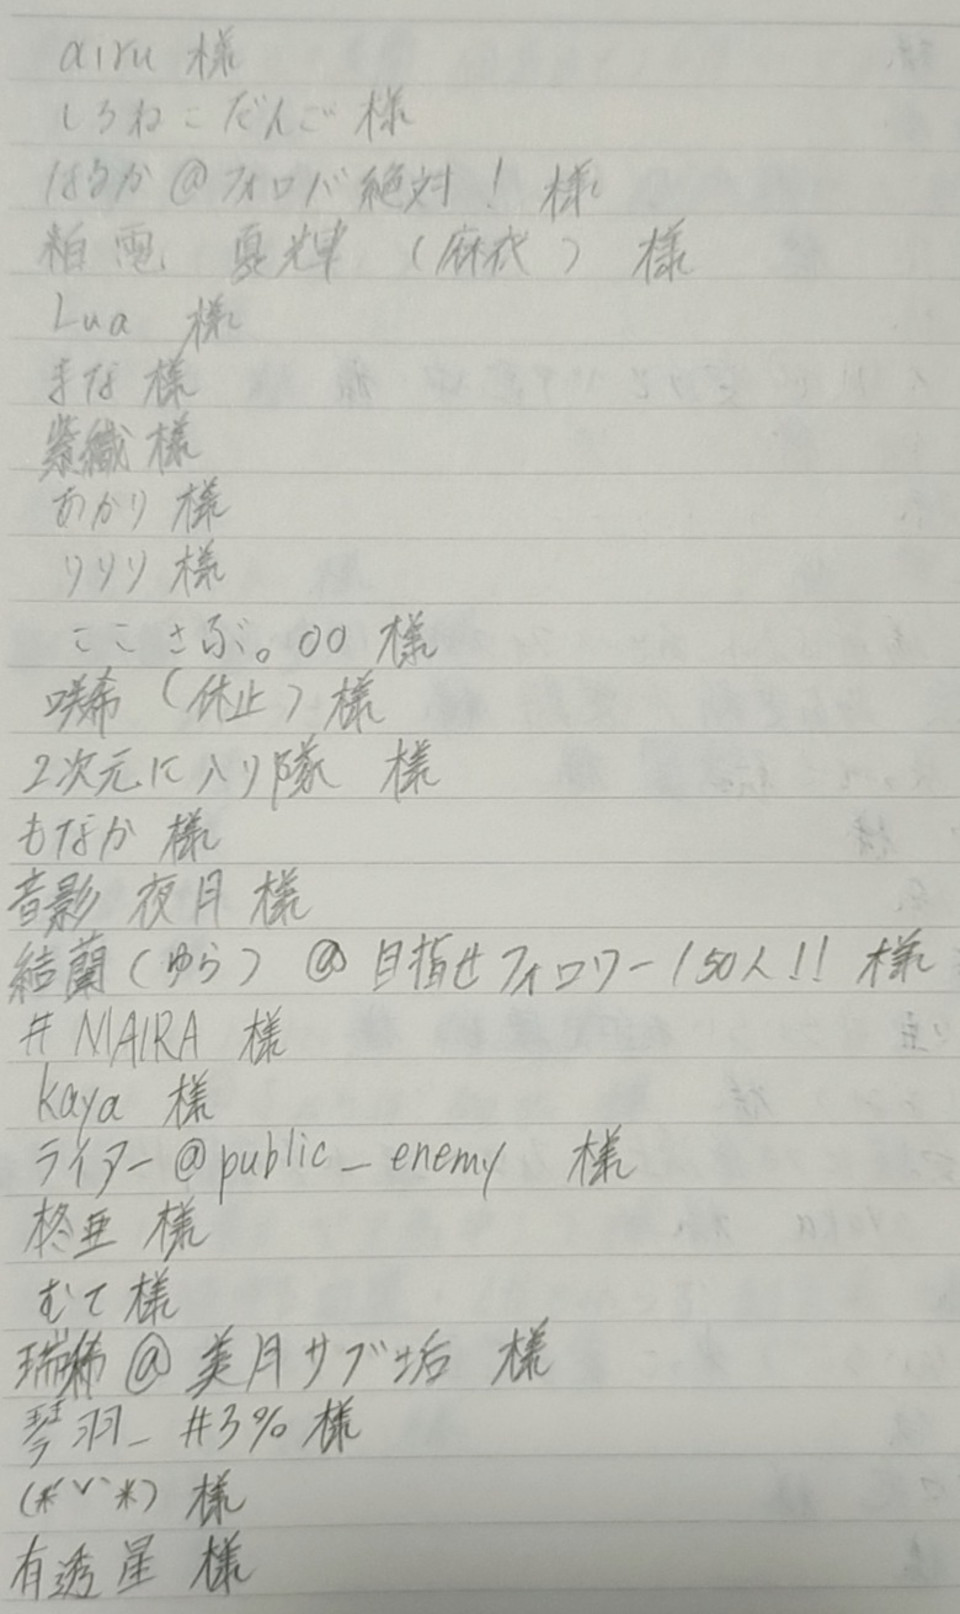 airu 様
しろねこだんご 様
はるか@フォロバ絶対! 様
夏輝 (麻衣) 様
Lua 様
まな 様
紫織 様
あかり 様
りりり 様
ここさぶ。00 様
咲希 (休止) 様
2次元に入り隊 様
もなか 様
音影 夜月 様
結蘭(ゆら) @ 目指せフォロワー150人!! 様
# NIAIRA 様
kaya 様
ライアー @public_enemy 様
柊亜 様
むて 様
瑞稀@美月サブ垢 様
琴羽_ #3% 様
(*˘˘*) 様
有透星 様